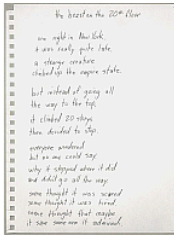 the beast on the 20th floor
one night in New York,
it was really quite late,
a strange creature
climbed up the empire state.
but instead of going all
the way to the top,
it climbed 20 storys
then decided to stop.
everyone wondered
but no one could say
why it stopped where it did
and didn't go all the way.
some thought it was scared
some thought it was tired.
some thought that maybe
it saw some one it admired.